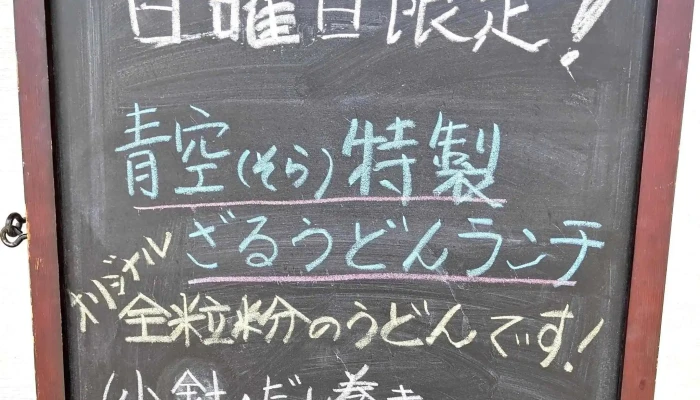 日曜日限定!
青空(そら)特製
ざるうどんランチ
オリジナル
全粒粉のうどんです!
(小鉢・だし巻き